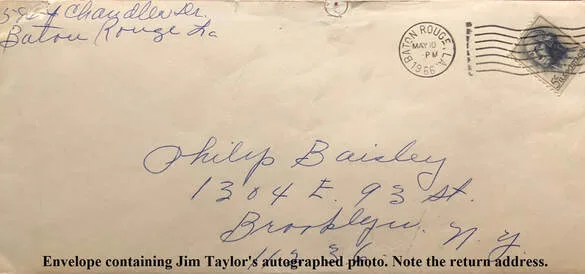 Chandler Dr.
Baton Rouge La
BATON ROUGE, LA.
MAY 10
PM
1966
Philip Baisley
1304 E. 93 St.
Brooklyn, N.Y.
Envelope containing Jim Taylor's autographed photo. Note the return address.